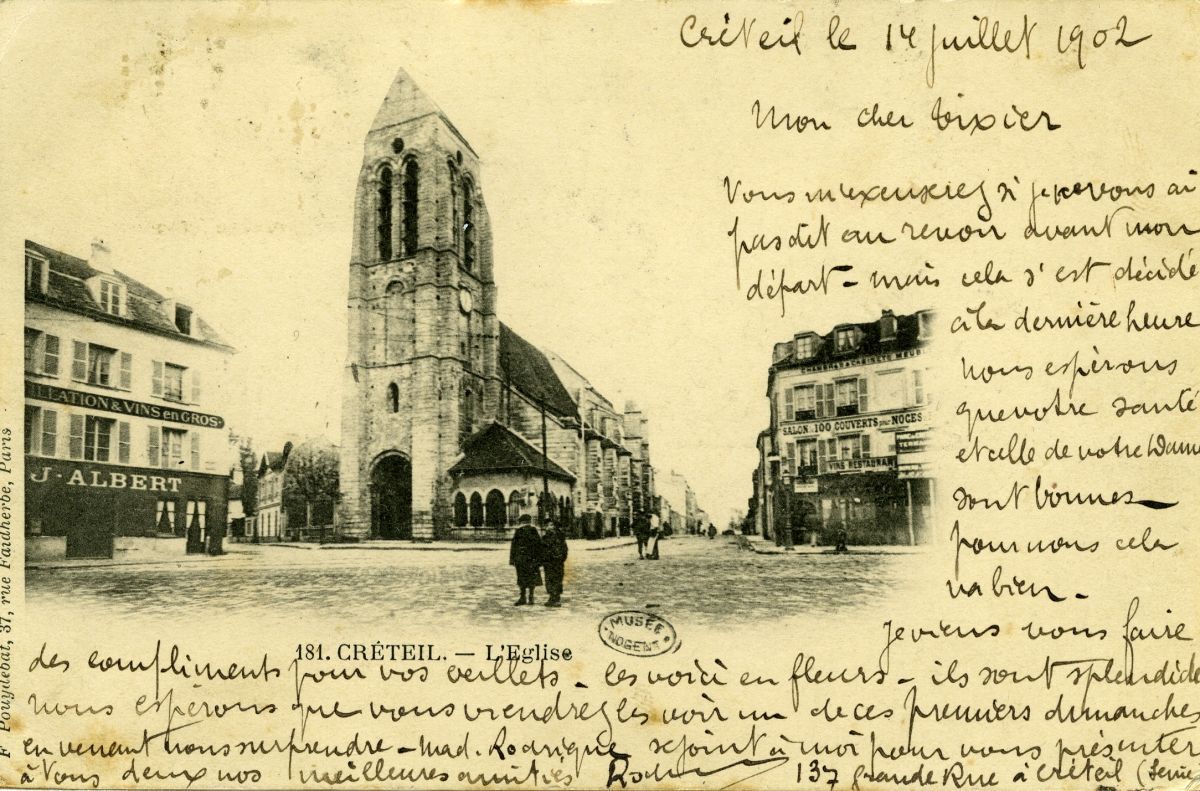 Créteil le 14 juillet 1902
Mon cher Tixier
Vous m'exuserez si je ne vous ai
pas dit au revoir avant mon
départ - mais cela s'est décidé
à la dernière heure
nous espérons
que votre santé
et celle de votre Dame
sont bonnes -
pour nous cela
va bien -
Je viens vous faire
des compliments pour vos œillets - les voici en fleurs - ils sont splendides
nous espérons que vous viendrez les voir un de ces premiers dimanches
en venant nous surprendre - Mad. Rodrigue se joint à moi pour vous présenter
à vous deux nos meilleures amitiés
137 grande Rue à Créteil (Seine
LLATION & VINS EN GROS
J. ALBERT
CHAMBRES & CABINETS MEUB
SALON DE 100 COUVERTS POUR NOCES
VINS RESTAURANT
MUSÉE
NOGENT
181. CRÉTEIL. — L'Eglise
F. Pouydebat, 37, rue Faidherbe, Paris